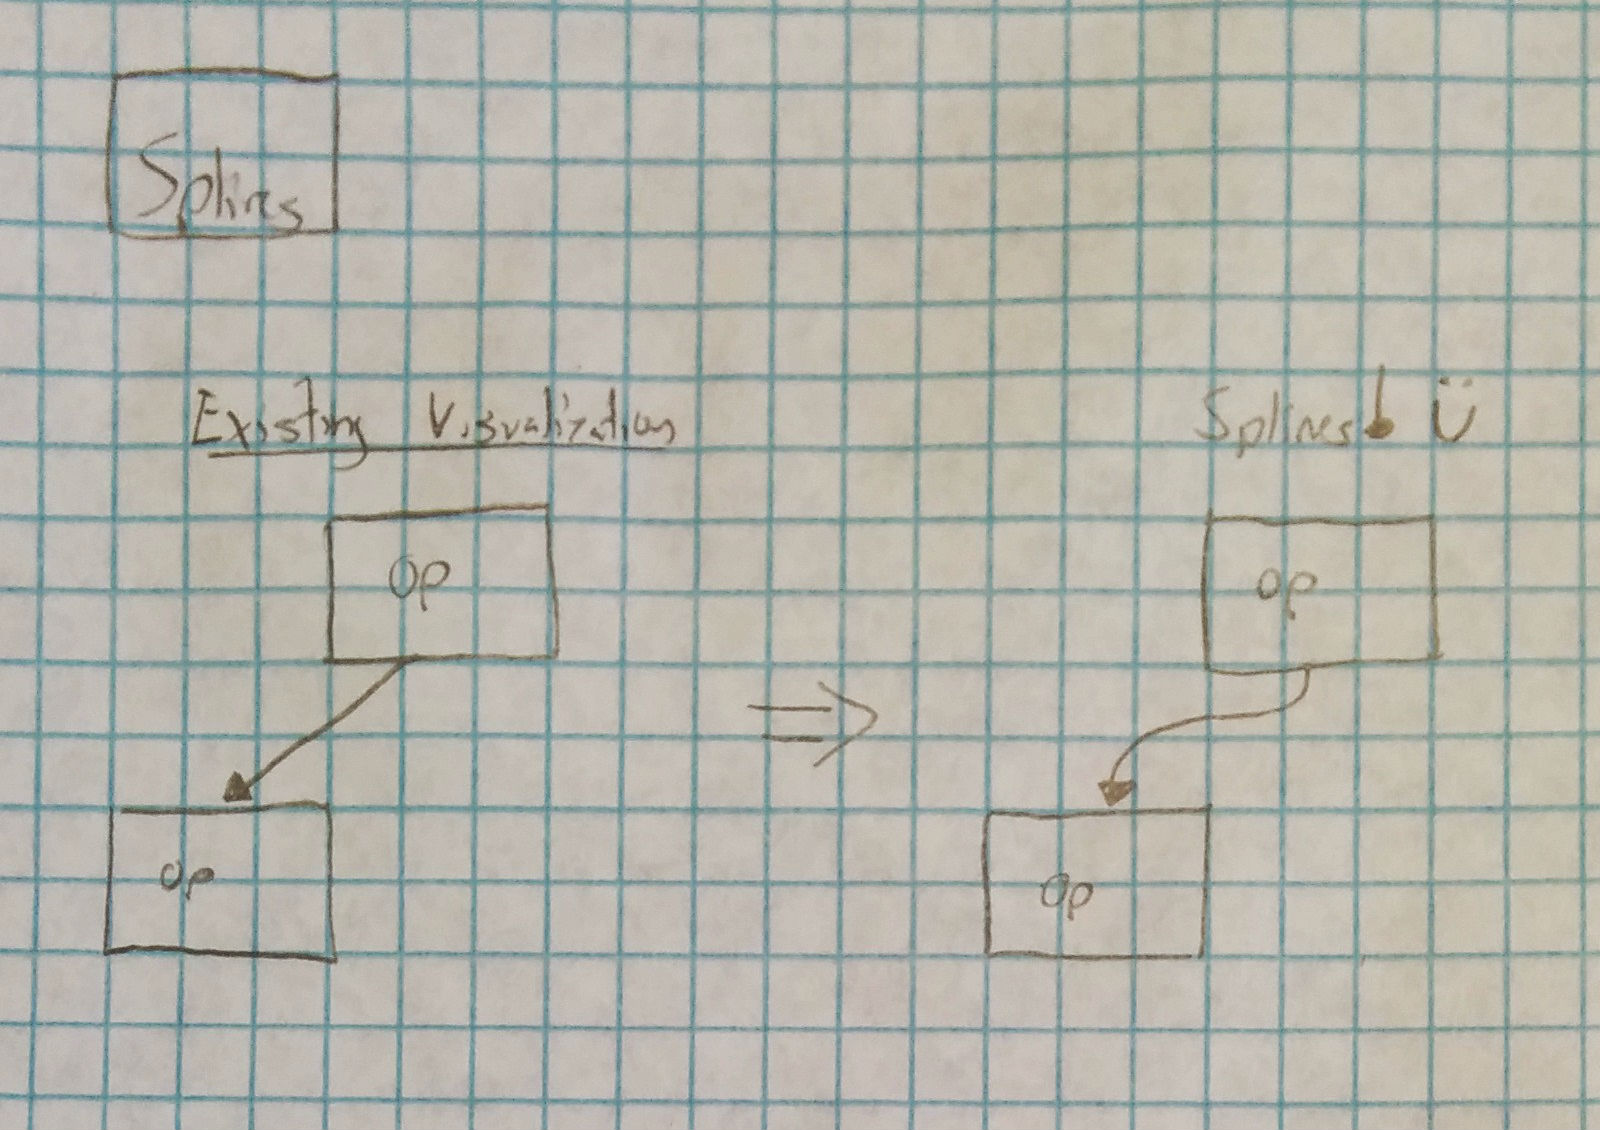 Splines
Existing Visualization
Splines! Ü
Op
Op
Op
Op